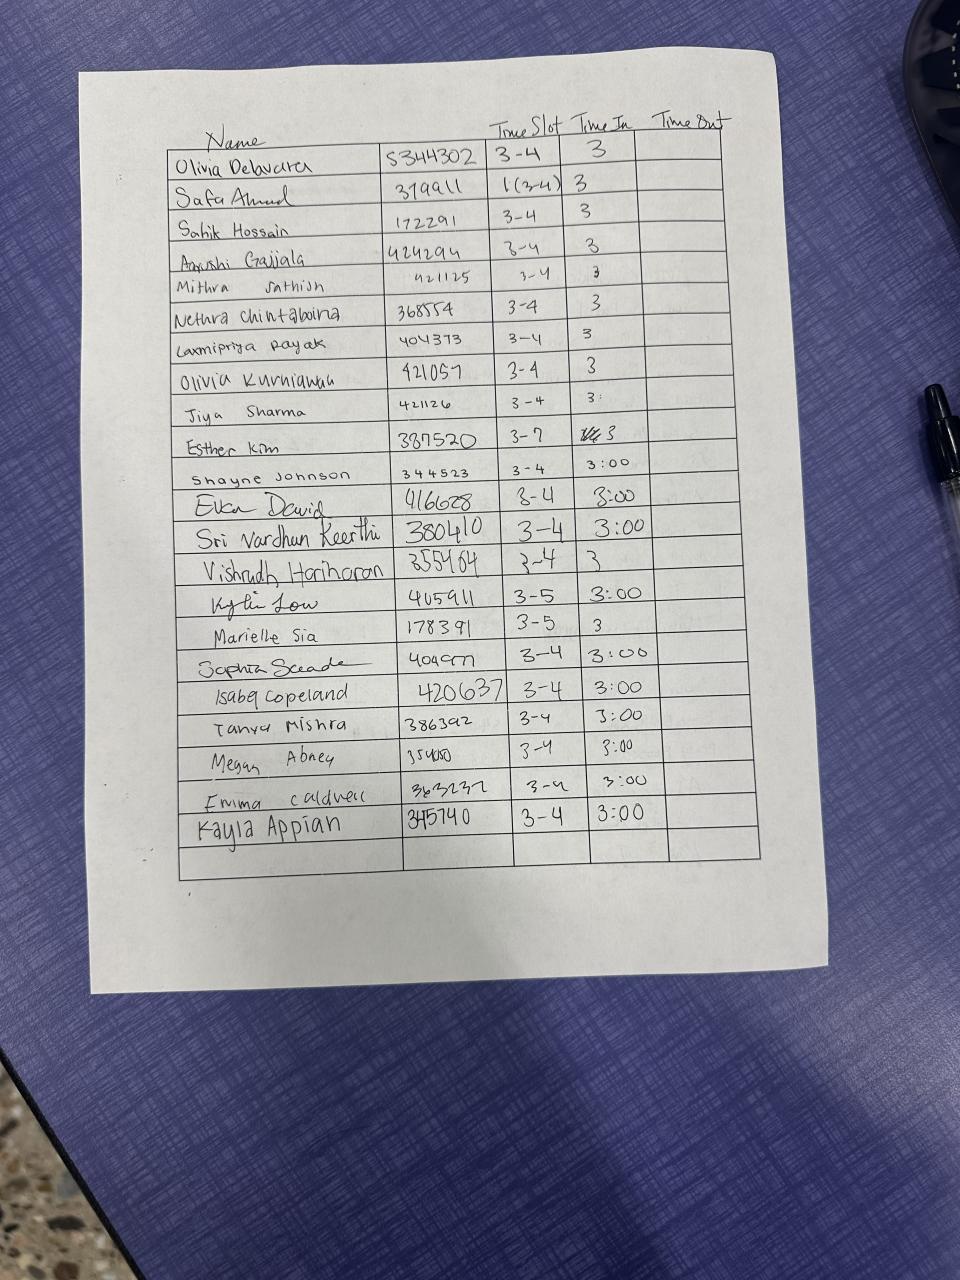 Name Time Slot Time In Time Out
Olivia 5344302 3-4 3
Safa Ahmed 379911 1(3-4) 3
Sahik Hossain 172291 3-4 3
Aayushi Gajjala 424294 3-4 3
Mithra Sathish 421125 3-4 3
Nethra Chintaboina 368554 3-4 3
Laxmipriya Nayak 404373 3-4 3
Olivia Kurniawan 421057 3-4 3
Jiya Sharma 421126 3-4 3:
Esther Kim 387520 3-7 3
Shayne Johnson 344523 3-4 3:00
David 416628 3-4 3:00
Sri Vardhan Keerthi 380410 3-4 3:00
Vishrudh Hariharan 355464 3-4 3
Kylin Low 405911 3-5 3:00
Marielle Sia 178391 3-5 3
Sophia 3-4 3:00
Isabel Copeland 420637 3-4 3:00
Tanya Mishra 386392 3-4 3:00
Megan Abney 3-4 3:00
Emma Caldwell 363237 3-4 3:00
Kayla Appian 345740 3-4 3:00